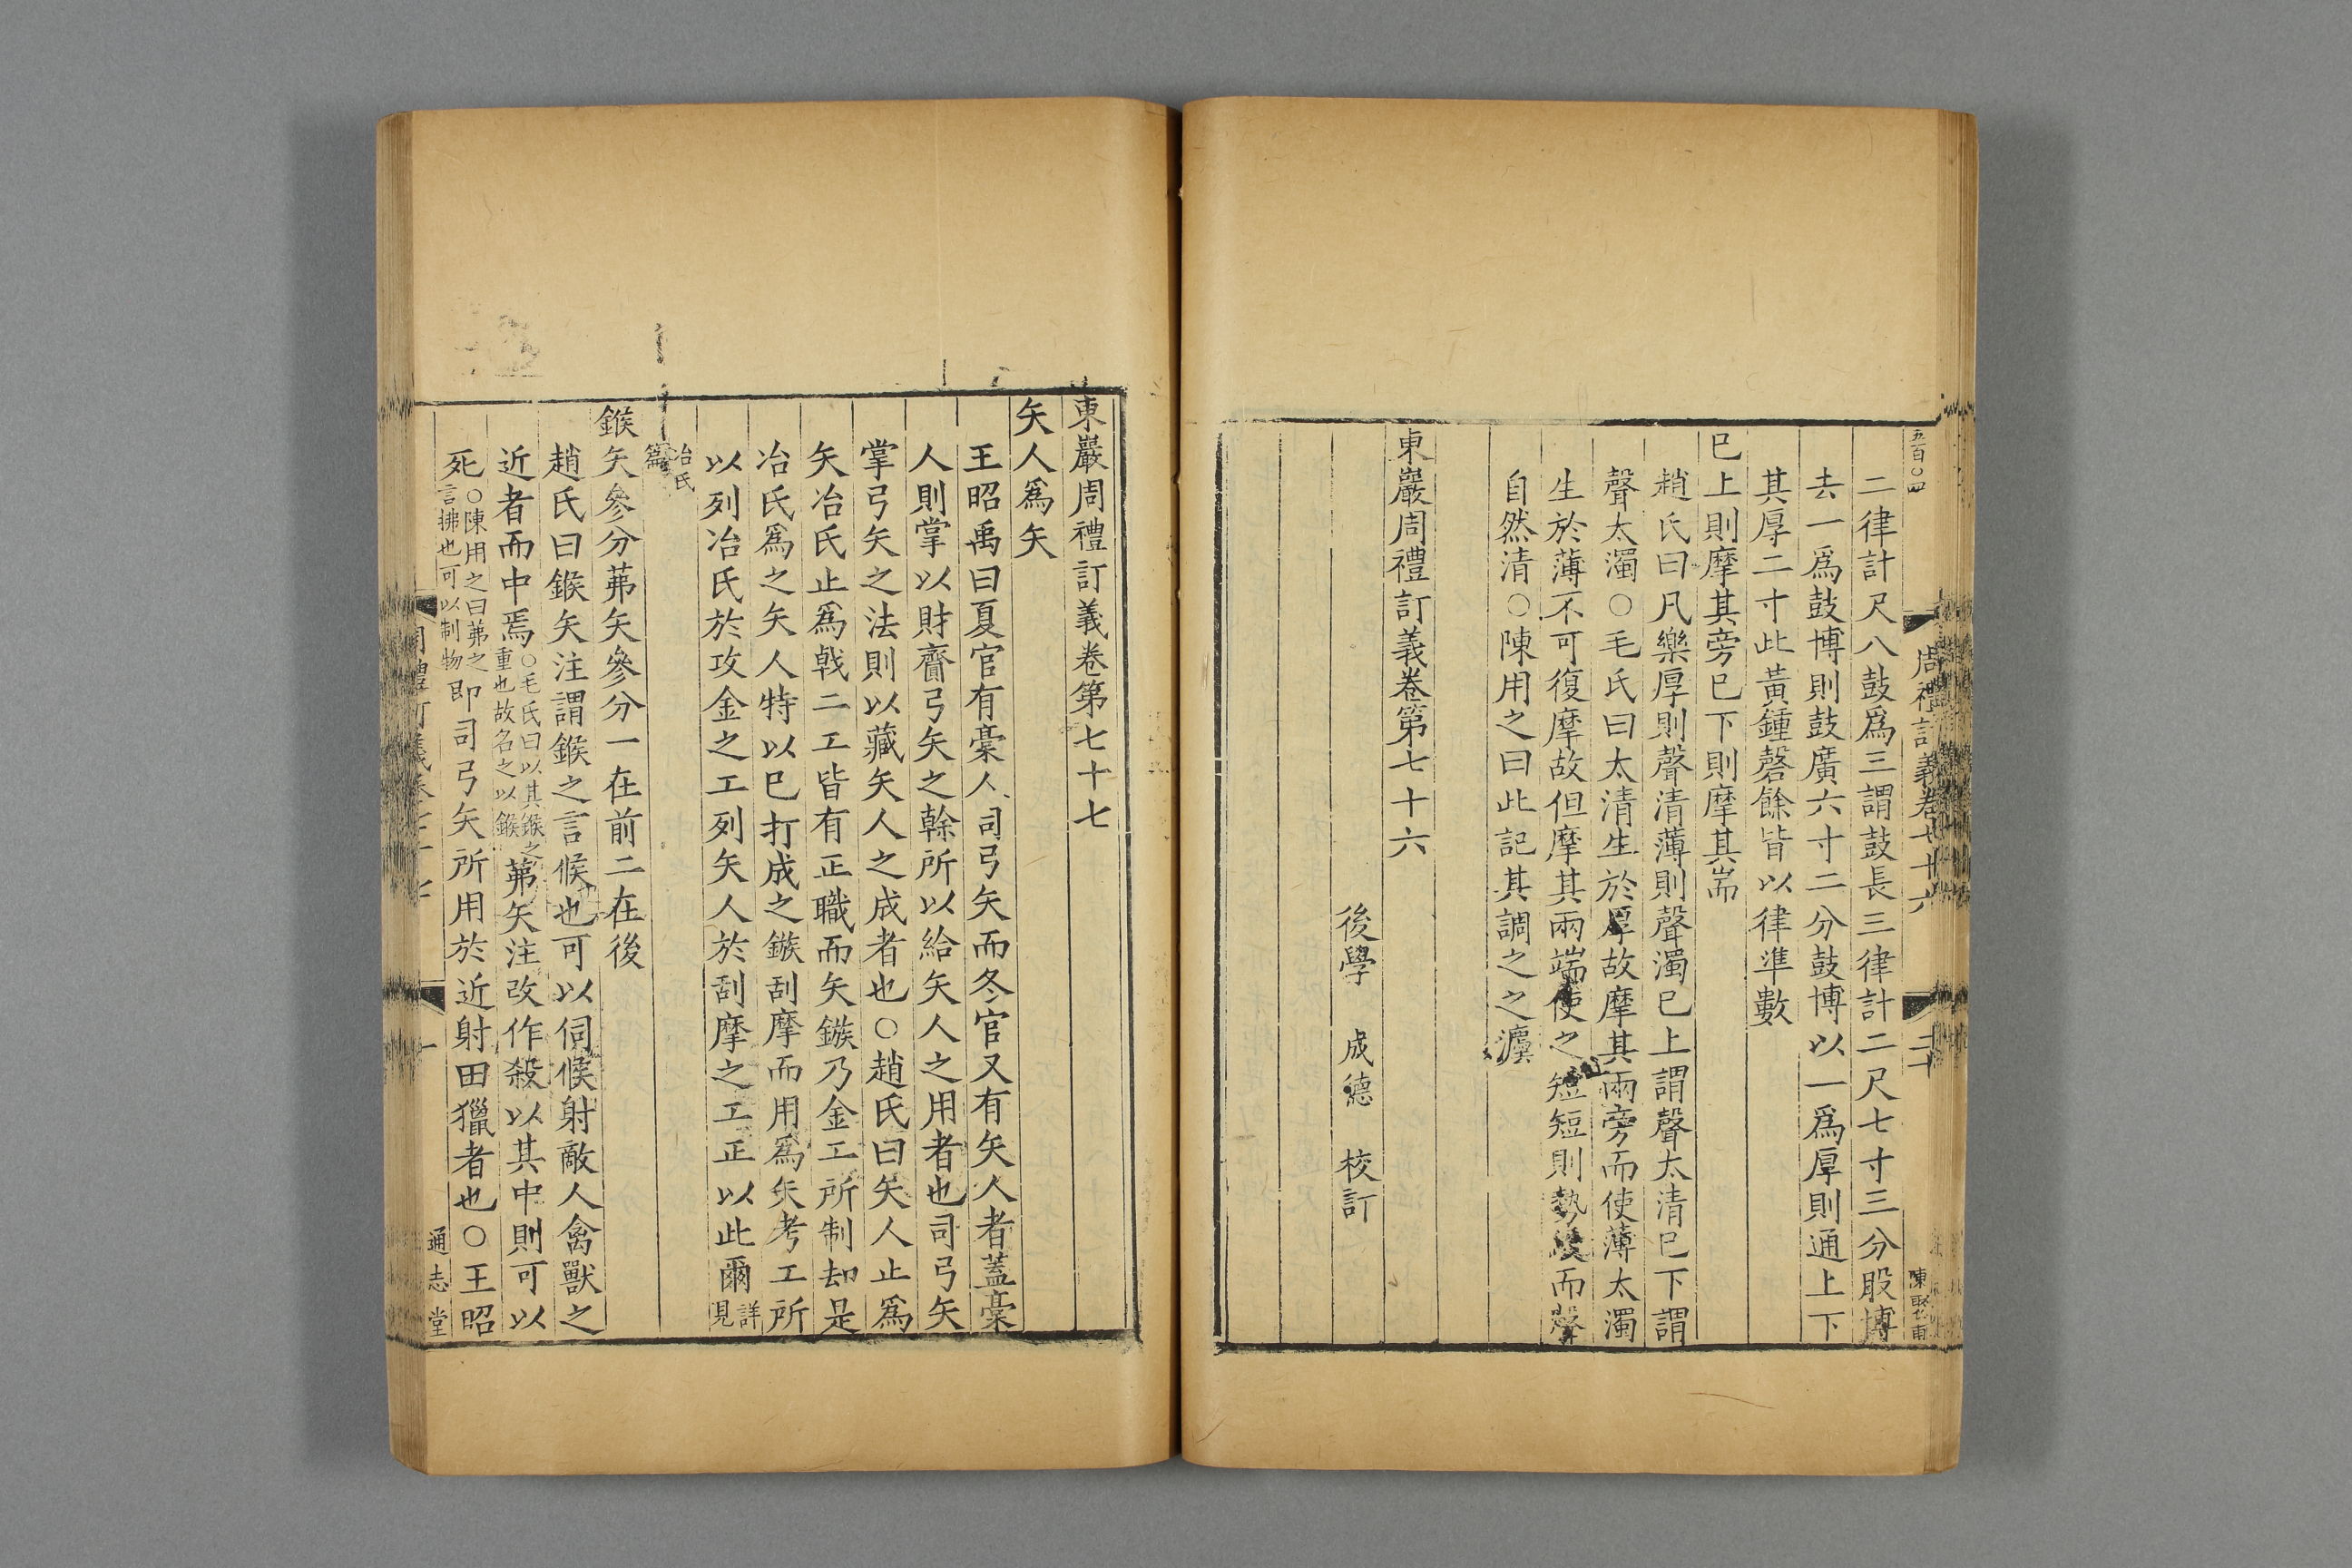 五百○四
周禮訂義卷七十六
二十
陳聖甫
二律計尺八鼓爲三謂鼓長三律計二尺七寸三分股博
去一爲鼓博則鼓廣六寸二分鼓博以一爲厚則通上下
其厚二寸此黃鍾磬餘皆以律準數
已上則摩其旁已下則摩其耑
趙氏曰凡樂厚則聲清薄則聲濁已上謂聲太清已下謂
聲太濁○毛氏曰太清生於厚故摩其兩旁而使薄太濁
生於薄不可復摩故但摩其兩端使之短短則勢而聲
自然清○陳用之曰此記其調之之灋
東巖周禮訂義卷第七十六
後學 成德 校訂
東巖周禮訂義卷第七十七
矢人爲矢
王昭禹曰夏官有槀人司弓矢而冬官又有矢人者蓋槀
人則掌以財齎弓矢之榦所以給矢人之用者也司弓矢
掌弓矢之法則以藏矢人之成者也○趙氏曰矢人止爲
矢冶氏止爲戟二工皆有正職而矢鏃乃金工所制却是
冶氏爲之矢人特以已打成之鏃刮摩而用爲矢考工所
以列冶氏於攻金之工列矢人於刮摩之工正以此爾詳見
冶氏篇
鍭矢參分茀矢參分一在前二在後
趙氏曰鍭矢注謂鍭之言候也可以伺候射敵人禽獸之
近者而中焉○毛氏曰以其鍭之重也故名之以鍭茀矢注改作殺以其中則可以
死○陳用之曰茀之言拂也可以制物即司弓矢所用於近射田獵者也○王昭
周禮訂義卷七十七
一
通志堂